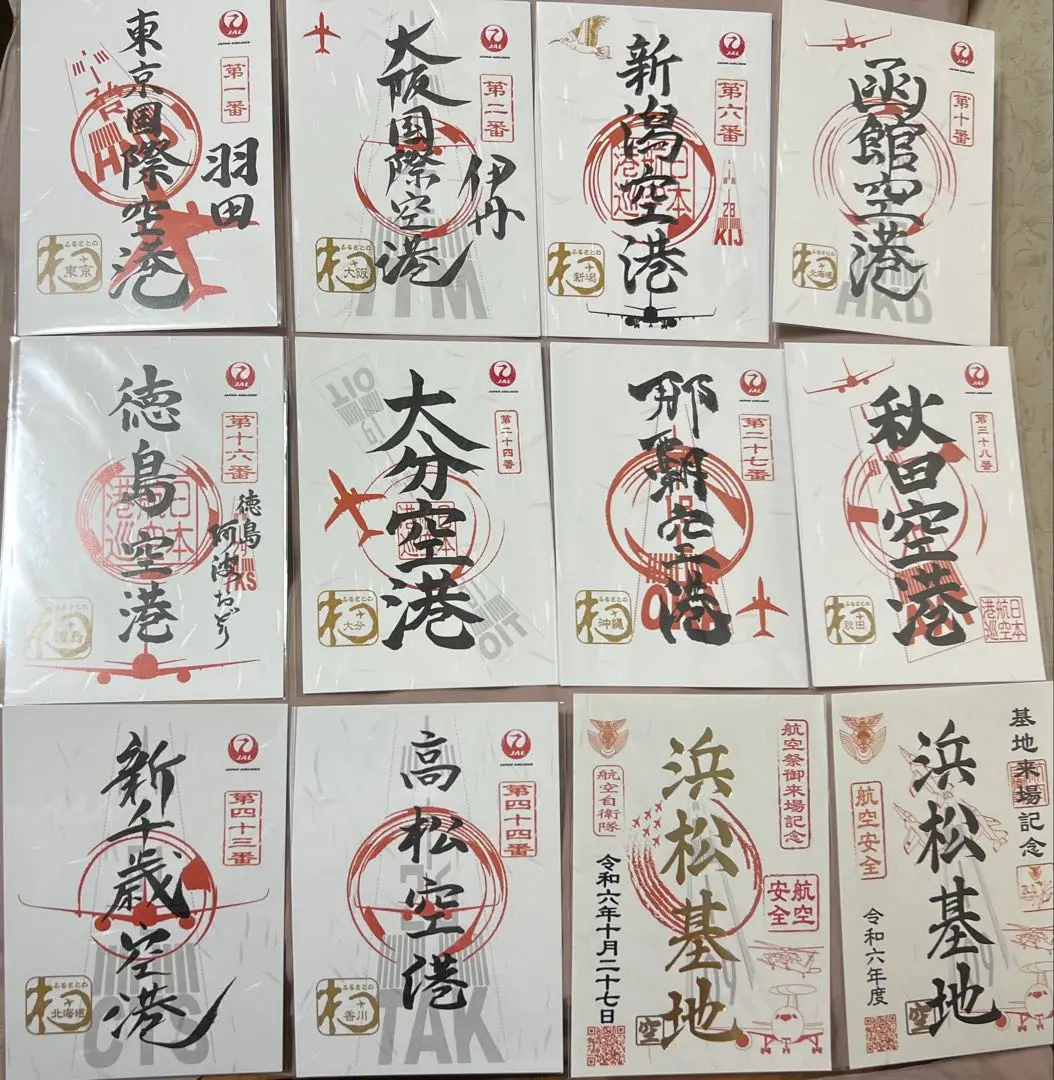 東京国際空港
羽田
第一番
JAL
JAPAN AIRLINES
HND
ふるさとの
東京
大阪国際空港
伊丹
第二番
JAL
JAPAN AIRLINES
ITM
ふるさとの
大阪
新潟空港
第六番
JAL
JAPAN AIRLINES
日本
港巡
28
KIJ
ふるさとの
新潟
函館空港
第十番
JAL
JAPAN AIRLINES
HKD
ふるさとの
北海道
徳島空港
徳島
阿波おどり
第十六番
JAL
JAPAN AIRLINES
日本
港巡
ふるさとの
徳島
大分空港
第二十四番
JAL
JAPAN AIRLINES
OIT
OIT
ふるさとの
大分
那覇空港
第二十七番
JAL
JAPAN AIRLINES
ふるさとの
沖縄
秋田空港
第三十八番
JAL
JAPAN AIRLINES
日本
航空
港巡
ふるさとの
秋田
新千歳空港
第四十三番
JAL
JAPAN AIRLINES
CTS
ふるさとの
北海道
高松空港
第四十四番
JAL
JAPAN AIRLINES
TAK
ふるさとの
香川
航空祭御来場記念
浜松基地
航空自衛隊
航空
安全
令和六年十月二十七日
空
基地来場記念
浜松基地
航空安全
令和六年度
空